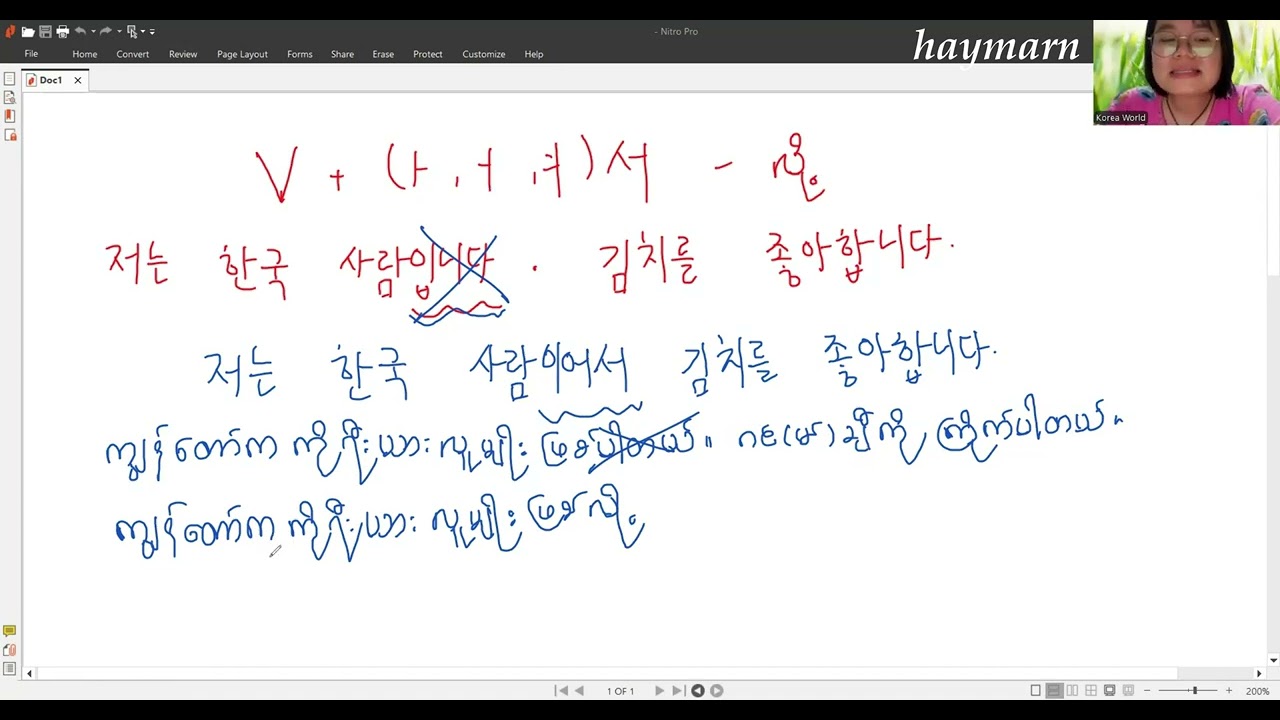 - Nitro Pro
haymarn
File Home Convert Review Page Layout Forms Share Erase Protect Customize Help
Doc1
Korea World
V + (ㅏ, ㅓ, ㅕ) 서 - လို့
저는 한국 사람입니다. 김치를 좋아합니다.
저는 한국 사람이어서 김치를 좋아합니다.
ကျွန်တော်က ကိုရီးယားလူမျိုး ဖြစ်ပါတယ်။ ကင်(မ်)ချီကို ကြိုက်ပါတယ်။
ကျွန်တော်က ကိုရီးယားလူမျိုး ဖြစ်လို့
1 OF 1
200%